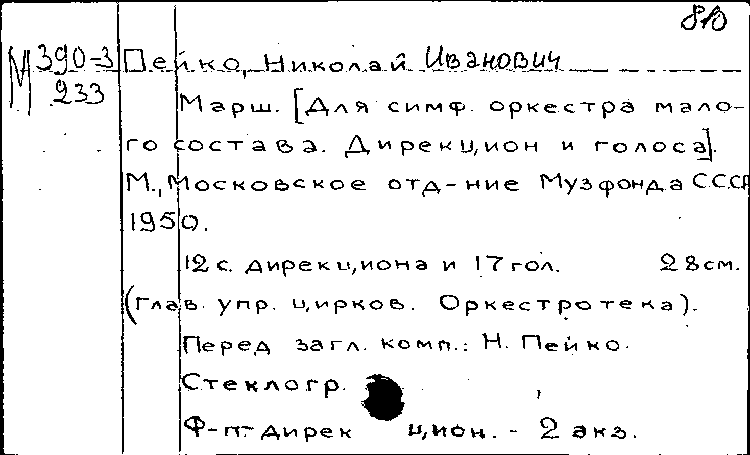 810
М 390-3 Пейко, Николай Иванович
233
Марш. [Для симф. оркестра мало-
го состава. Дирекцион и голоса].
М., Московское отд-ние Музфонда СССР
1950.
12 с. дирекциона и 17 гол. 28 см.
(Глав. упр. цирков. Оркестротека).
Перед загл. комп.: Н. Пейко.
Стеклогр.
Ф-п-дирек цион. - 2 экз.